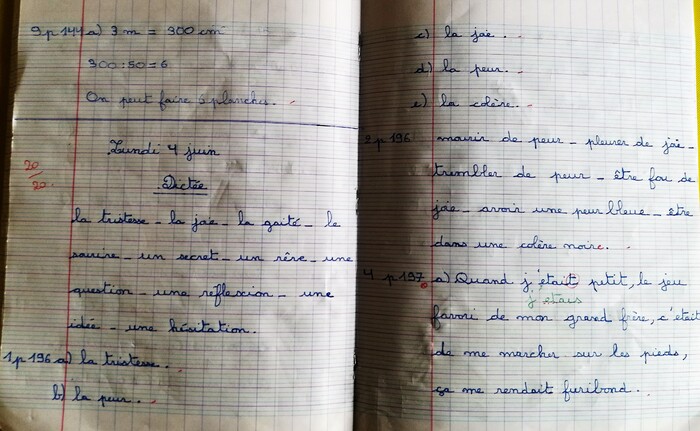 9 p 144 a) 3 m = 300 cm
300 : 50 = 6
On peut faire 6 planches.
Lundi 4 juin
20/20.
Dictée
la tristesse - la joie - la gaité - le
sourire - un secret - un rêve - une
question - une réflexion - une
idée - une hésitation.
1 p 196 a) la tristesse.
b) la peur.
c) la joie.
d) la peur.
e) la colère.
2 p 196 mourir de peur - pleurer de joie -
trembler de peur - être fou de
joie - avoir une peur bleue - être
dans une colère noire.
4 p 197 a) Quand j'était petit, le jeu
j'étais
favori de mon grand frère, c'était
de me marcher sur les pieds,
ça me rendait furibond.